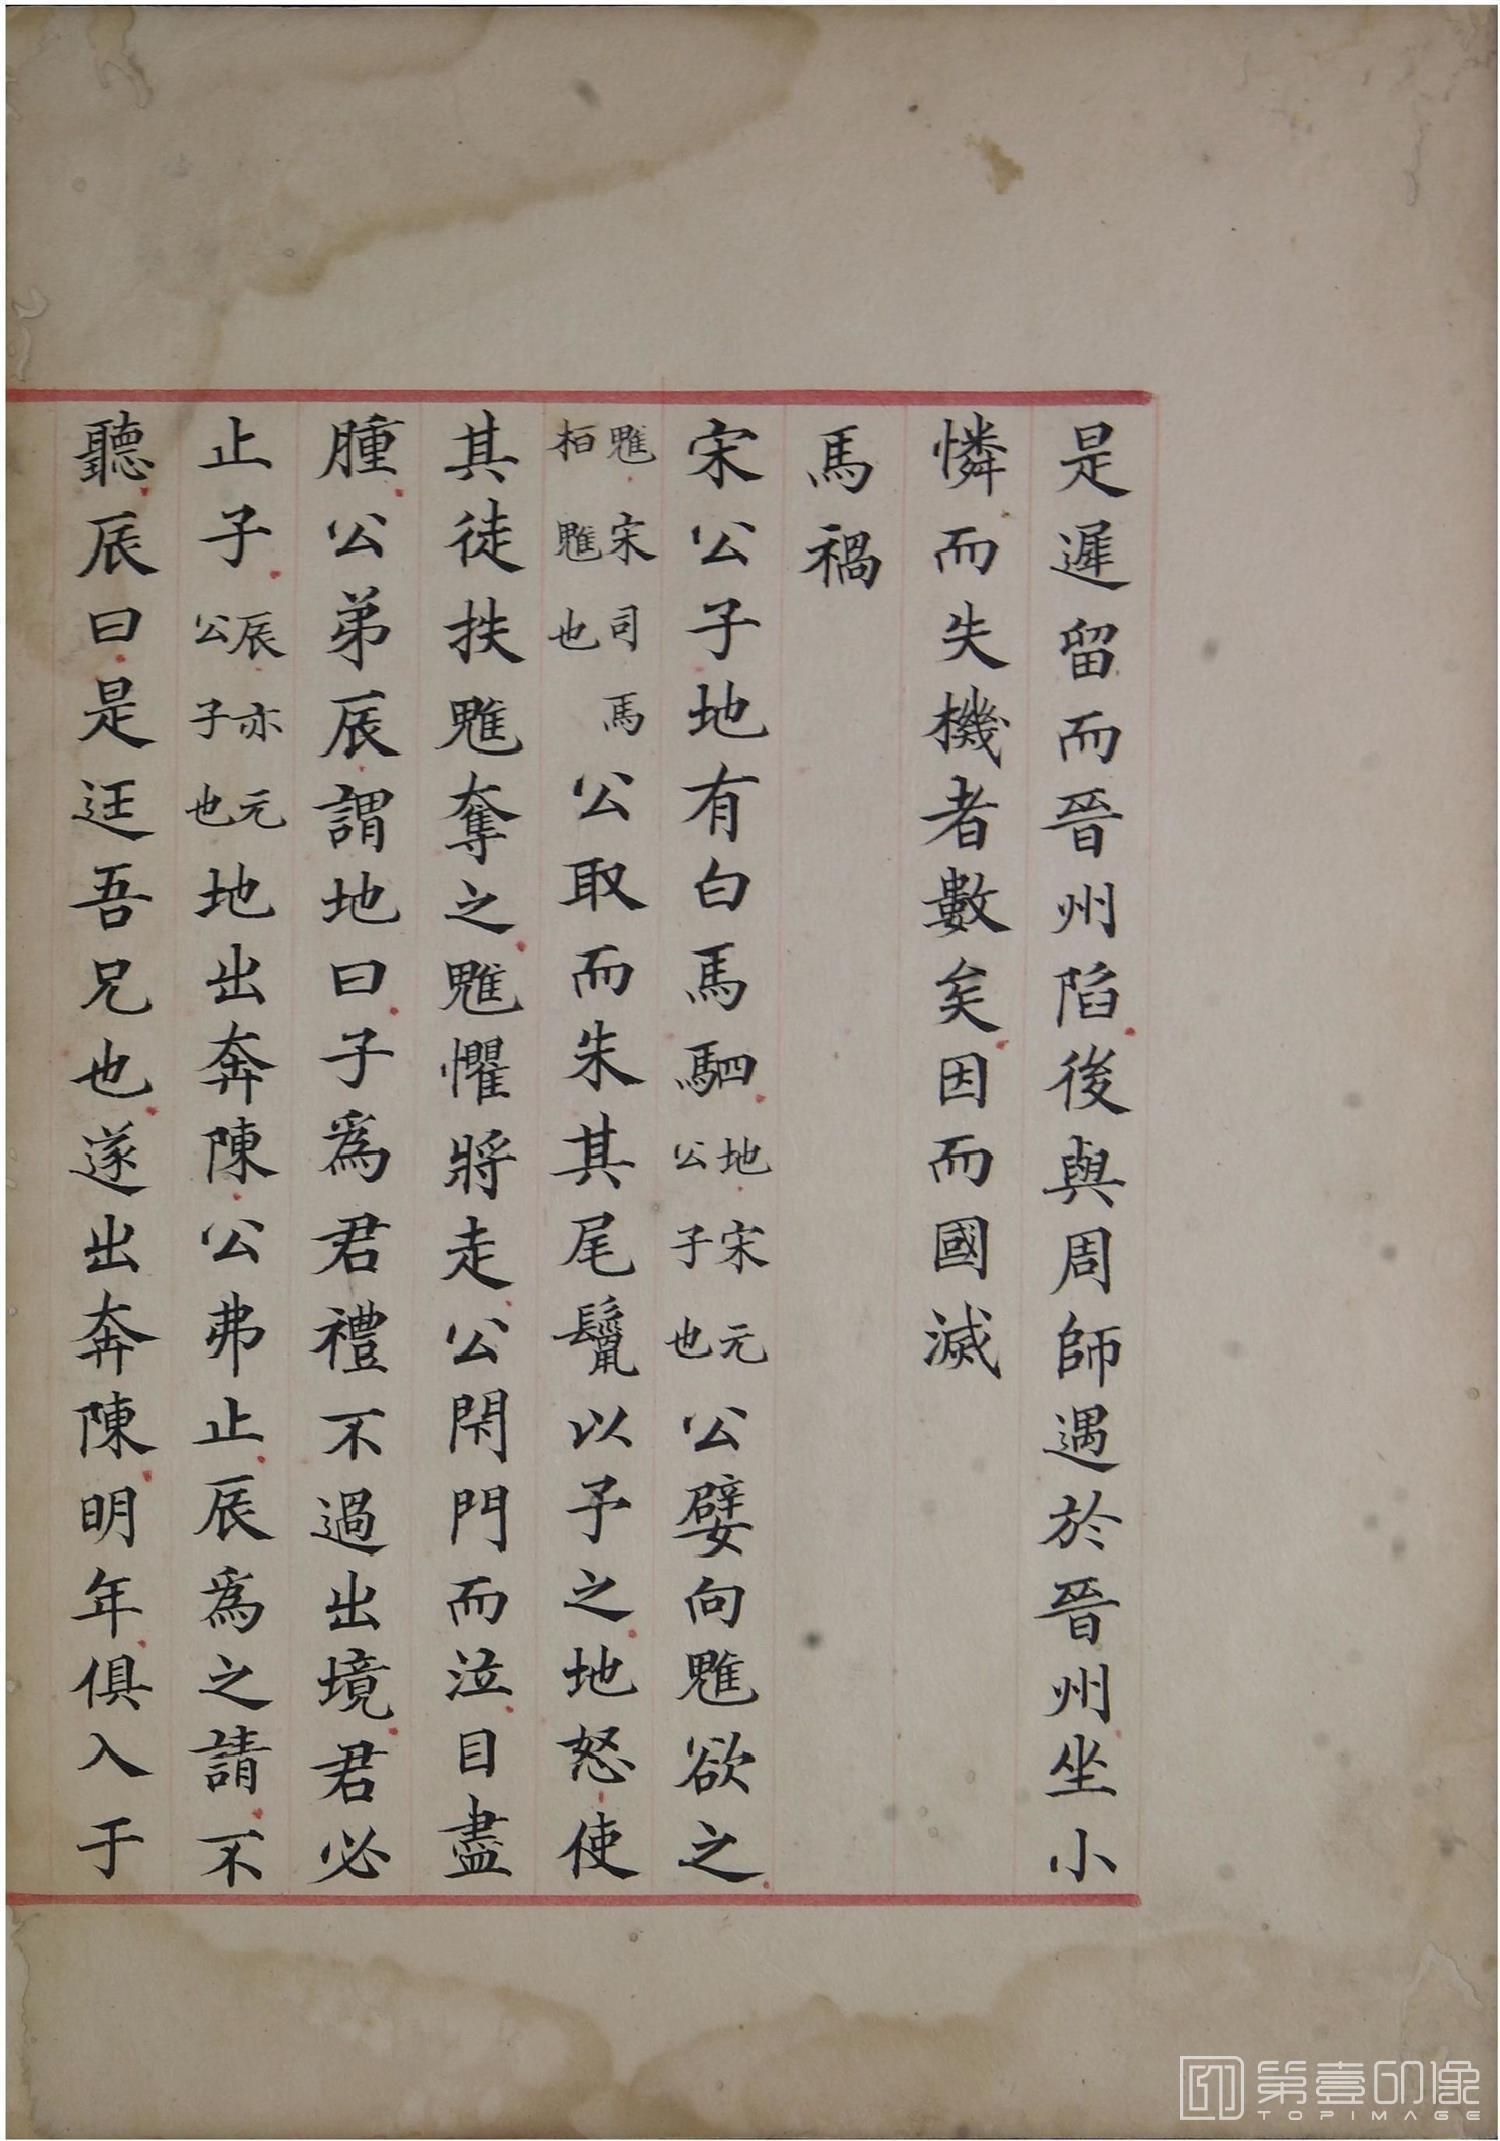 是遲留而晉州陷後與周師遇於晉州坐小
憐而失機者數矣因而國滅
馬禍
宋公子地有白馬駟地宋元公子也公嬖向魋欲之
魋宋司馬桓魋也公取而朱其尾鬣以予之地怒使
其徒抶魋奪之魋懼將走公閉門而泣目盡
腫公弟辰謂地曰子爲君禮不過出境君必
止子辰亦元公子也地出奔陳公弗止辰爲之請不
聽辰曰是迋吾兄也遂出奔陳明年俱入于
第壹印像
TOPIMAGE